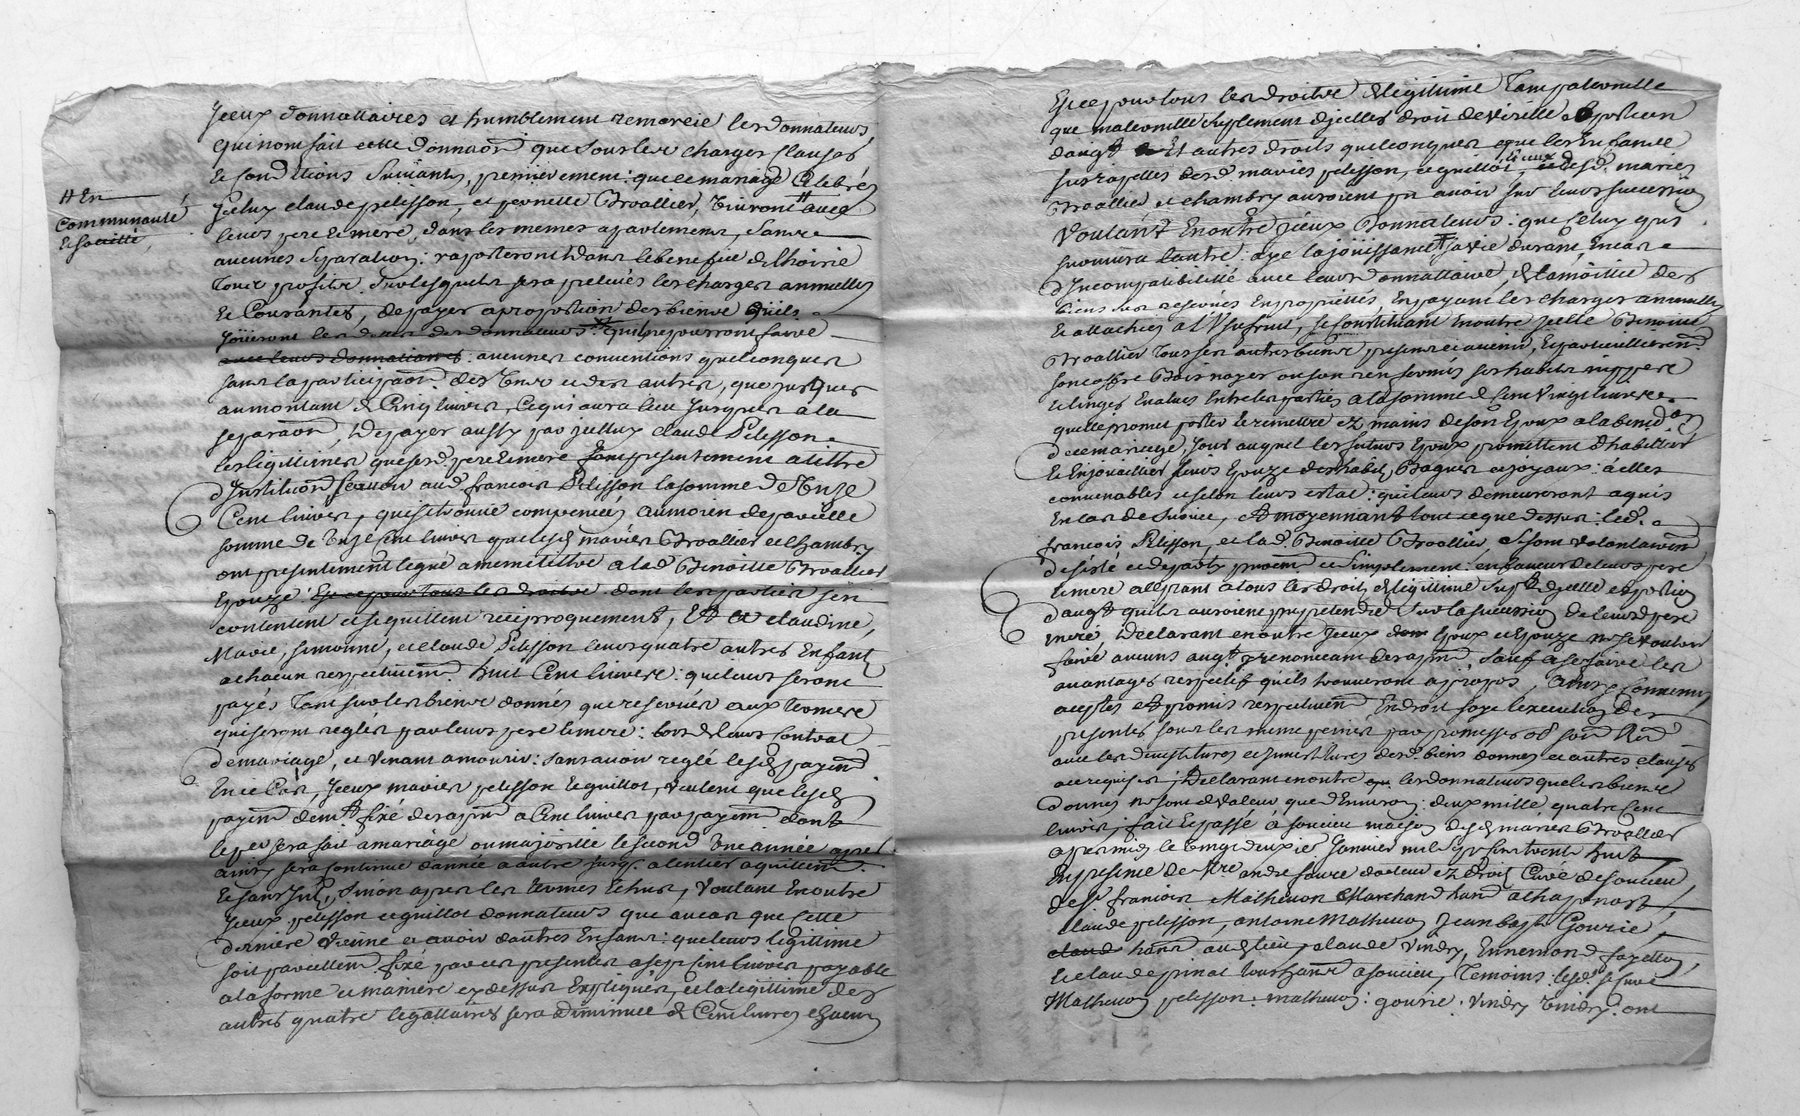 # En
Communauté
& société
Jceux donnattaires et humblement remercié lesdonnateurs,
Quinont fait cette donnaon que sous les charges Clauses
& Conditions Suivantes, premierement: que le mariage Celebré
Jceluy claude pelisson, et pernette Broallier, vivront # avec
leurs pere & mere, dans les memes apartements, sans
aucunes Separation: raporteront dans le benefice de lhoirie
Tous profits. Sur lesquels sera prelevés les charges annuelles
& Courantes, de payer aproportion des biens Quils
Joüiront les uns des donnateurs quils ne pourront faire
avec leurs donnations: aucunes conventions quelconques
sans la participaon des uns et des autres, que jusques
au montant de Cinq livres, Cequi aura lieu Jusques a la
separaon, & de payer aussy par Jcelluy claude Pelisson
les legittimes que sesd. pere & mere font presentement a tittre
d'Institution Scavoir aud. francois Pelisson la somme de unze
Cent livres, qui setrouve compencée, aumoien de pareille
somme de unze Cent livres que lesd. mariés Broallier et Chambry
ont presentement legué a meme tittre a lad. Benoitte Broallier
Epouze: Et ce pour tous les droits dont les parties sen
contentent et sequittent reciproquement, Et a claudine,
Marie, Simonne, et claude Pelisson leurs quatre autres Enfants
a chacun respectivemt. huit Cent livres: qui leurs seront
payés Tant sur les biens donnés que reservés aux termes
qui seront reglés par leurs pere & mere: lors de leurs Contrat
demariage, et venant amourir: sans avoir reglé lesd. payemt
En ce Cas, Jceux mariés pelisson & guillot, veulent que lesd.
payemt demt. fixé des apnt a Cent livres par payemt dont
le per. sera fait a mariage ou majorité le second une année apres
ainsy sera continué dannée a autre jusqs. a lentier aquittemt.
& sans Jnt, Sinon apres les termes Echus, Voulant En outre
Jceux pelisson et guillot donnateurs que au cas que Cette
derniere vienne a avoir dautres Enfans: que leurs legittime
soit pareillemt fixé par ces presentes a sept Cent livres payable
a la forme et maniere cy dessus Expliquée, et la legittime des
autres quatre legattaires sera Diminuee de Cent livres chacun
Et ce pour tous les droits de legittime Tant paternelle
que maternelle Suplement d'jcelles droit de virille & portion
daugt Et autres droits quelconques que les Enfans
susrapellés desd. mariés pelisson, et guillot, & ceux desd. mariés
Broallier et chambry auroient pu avoir sur leurs succession
Voulant En outre Jceux Donnateurs: que Celuy qui
survivra lautre: aye la joüissance sa vie durant, En cas
d'Incompatibilité avec leurs donnattaires, de la moitiée des
biens sus reservés En propriettés, En payant les charges annuelles
& attachées a l'Usufruit, se Constituant En outre Jcelle Benoitte
Broallier Tous ses autres biens presens et avenir, Et particulieremt.
son coffre Bois noyer ou son renfermés ses habits nippes
& linges Evalués Entre les parties a la somme de Cent Vingt livres
quelle promet porter & remettre ez mains de son Epoux a la benedon
de ce mariage, Jour auquel les futurs Epoux promettent d'habiller
& Enjouailler leurs Epouze des habits, Bagues et joyaux: a elles
convenables et selon leurs estat: qui leurs demeureront aquis
En cas de Survie, et moyennant tout ce que dessus: led.
francois Pelisson, et lad. Benoitte Broallier, se sont volontairemt
desisté et departy purement et simplement: en faveur de leurs pere
& mere acceptant a tous les droits de legittime Supt. d'jcelle et portion
daugt. quils auroient pu pretendre sur la succession de leursd. pere
& mere, Declarant en outre Jceux Epoux et Epouze ne se vouloir
faire aucuns augt. renoncant des apnt. Sauf a se faire les
avantages respectifs quils trouveront apropos, Ainsy Convenu,
acceptés et promis respectivemt En droit foye lexecution des
presentes sous les meme peines par promesses obon soumon Renon
avec les devestitures et Investitures desd. biens donnés et autres clauses
a ce requises; Declarant en outre les donnateurs que les biens
donnés ne sont de valeur que d'Environ deux mille quatre Cent
livres; fait & passé à soucieu maison desd. mariés Broallier
apres midy le vingt deuxie Janvier mil sept Cent trente huit
En presence de Sre andre favre docteur ez droit Curé de soucieu
de Sr. francois Matheuon Marchand habt. a chaponost
Claude pelisson, antoine Matheuon Jean bapt. Gourié
habts. aud. lieu, claude Vindry, Ennemond fayolle,
& claude pinat tous habts. a soucieu, Temoins: lesd. Sr Curé
Matheuon, pelisson: matheuon: gourie: Vindry vindry. ont